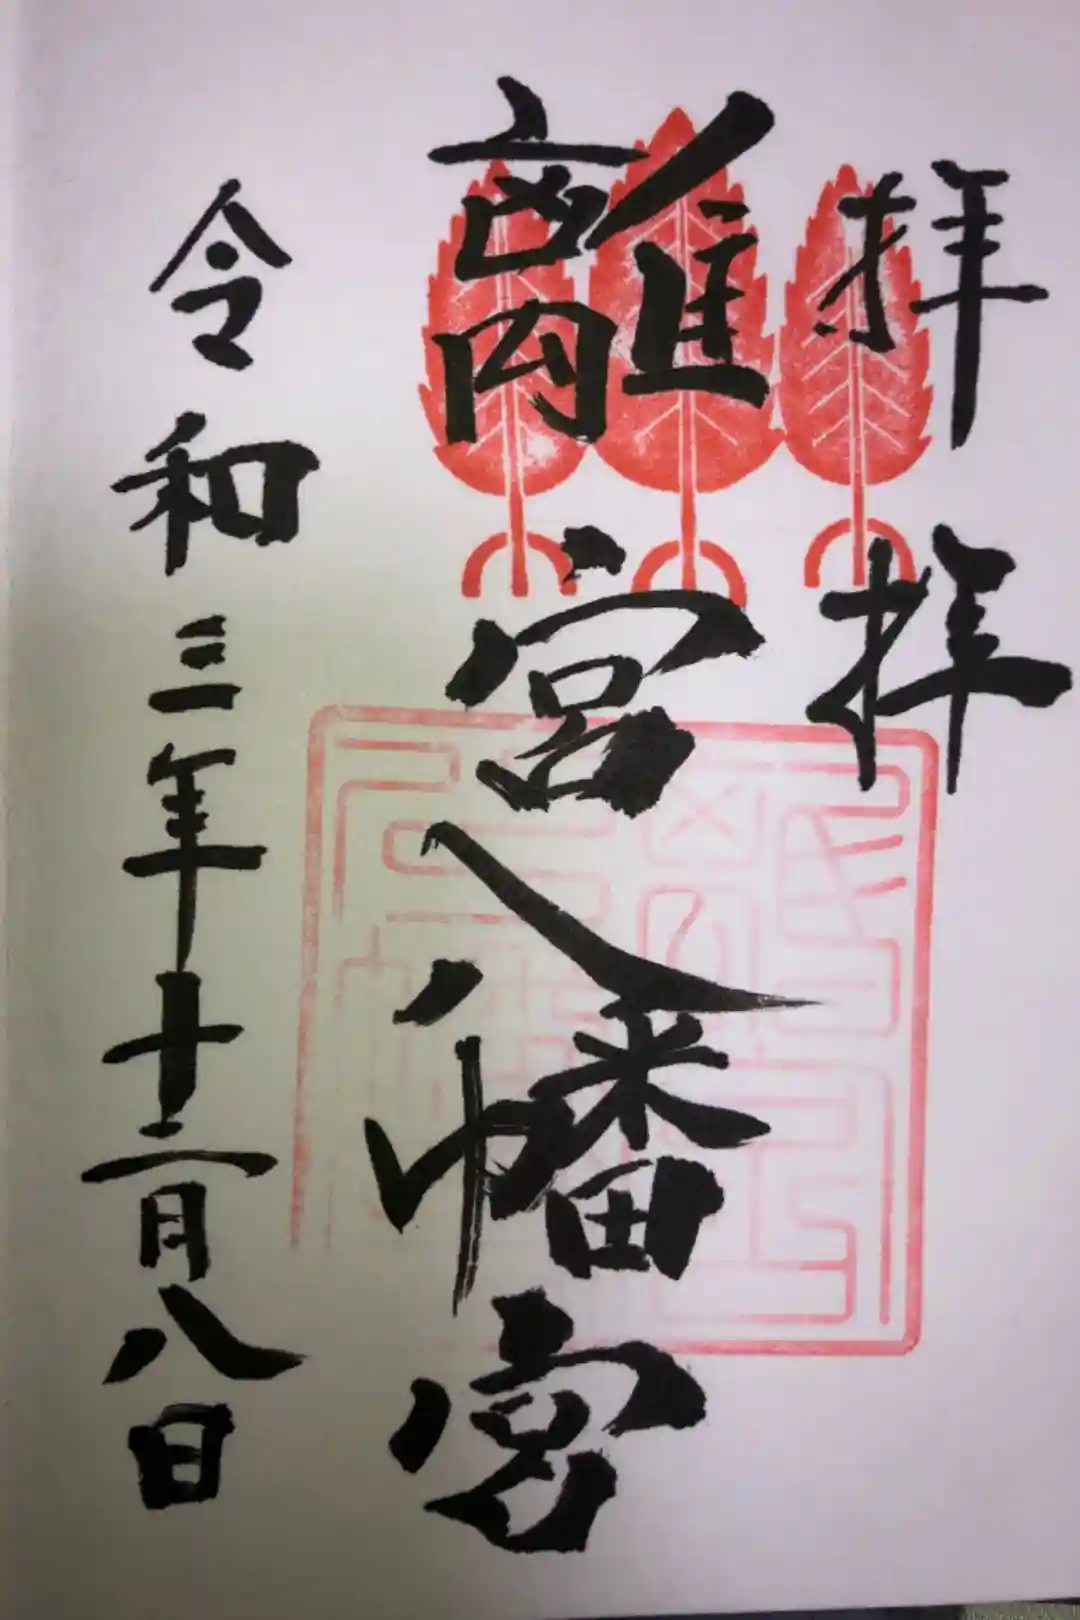 拝拝
離宮八幡宮
令和三年十二月八日